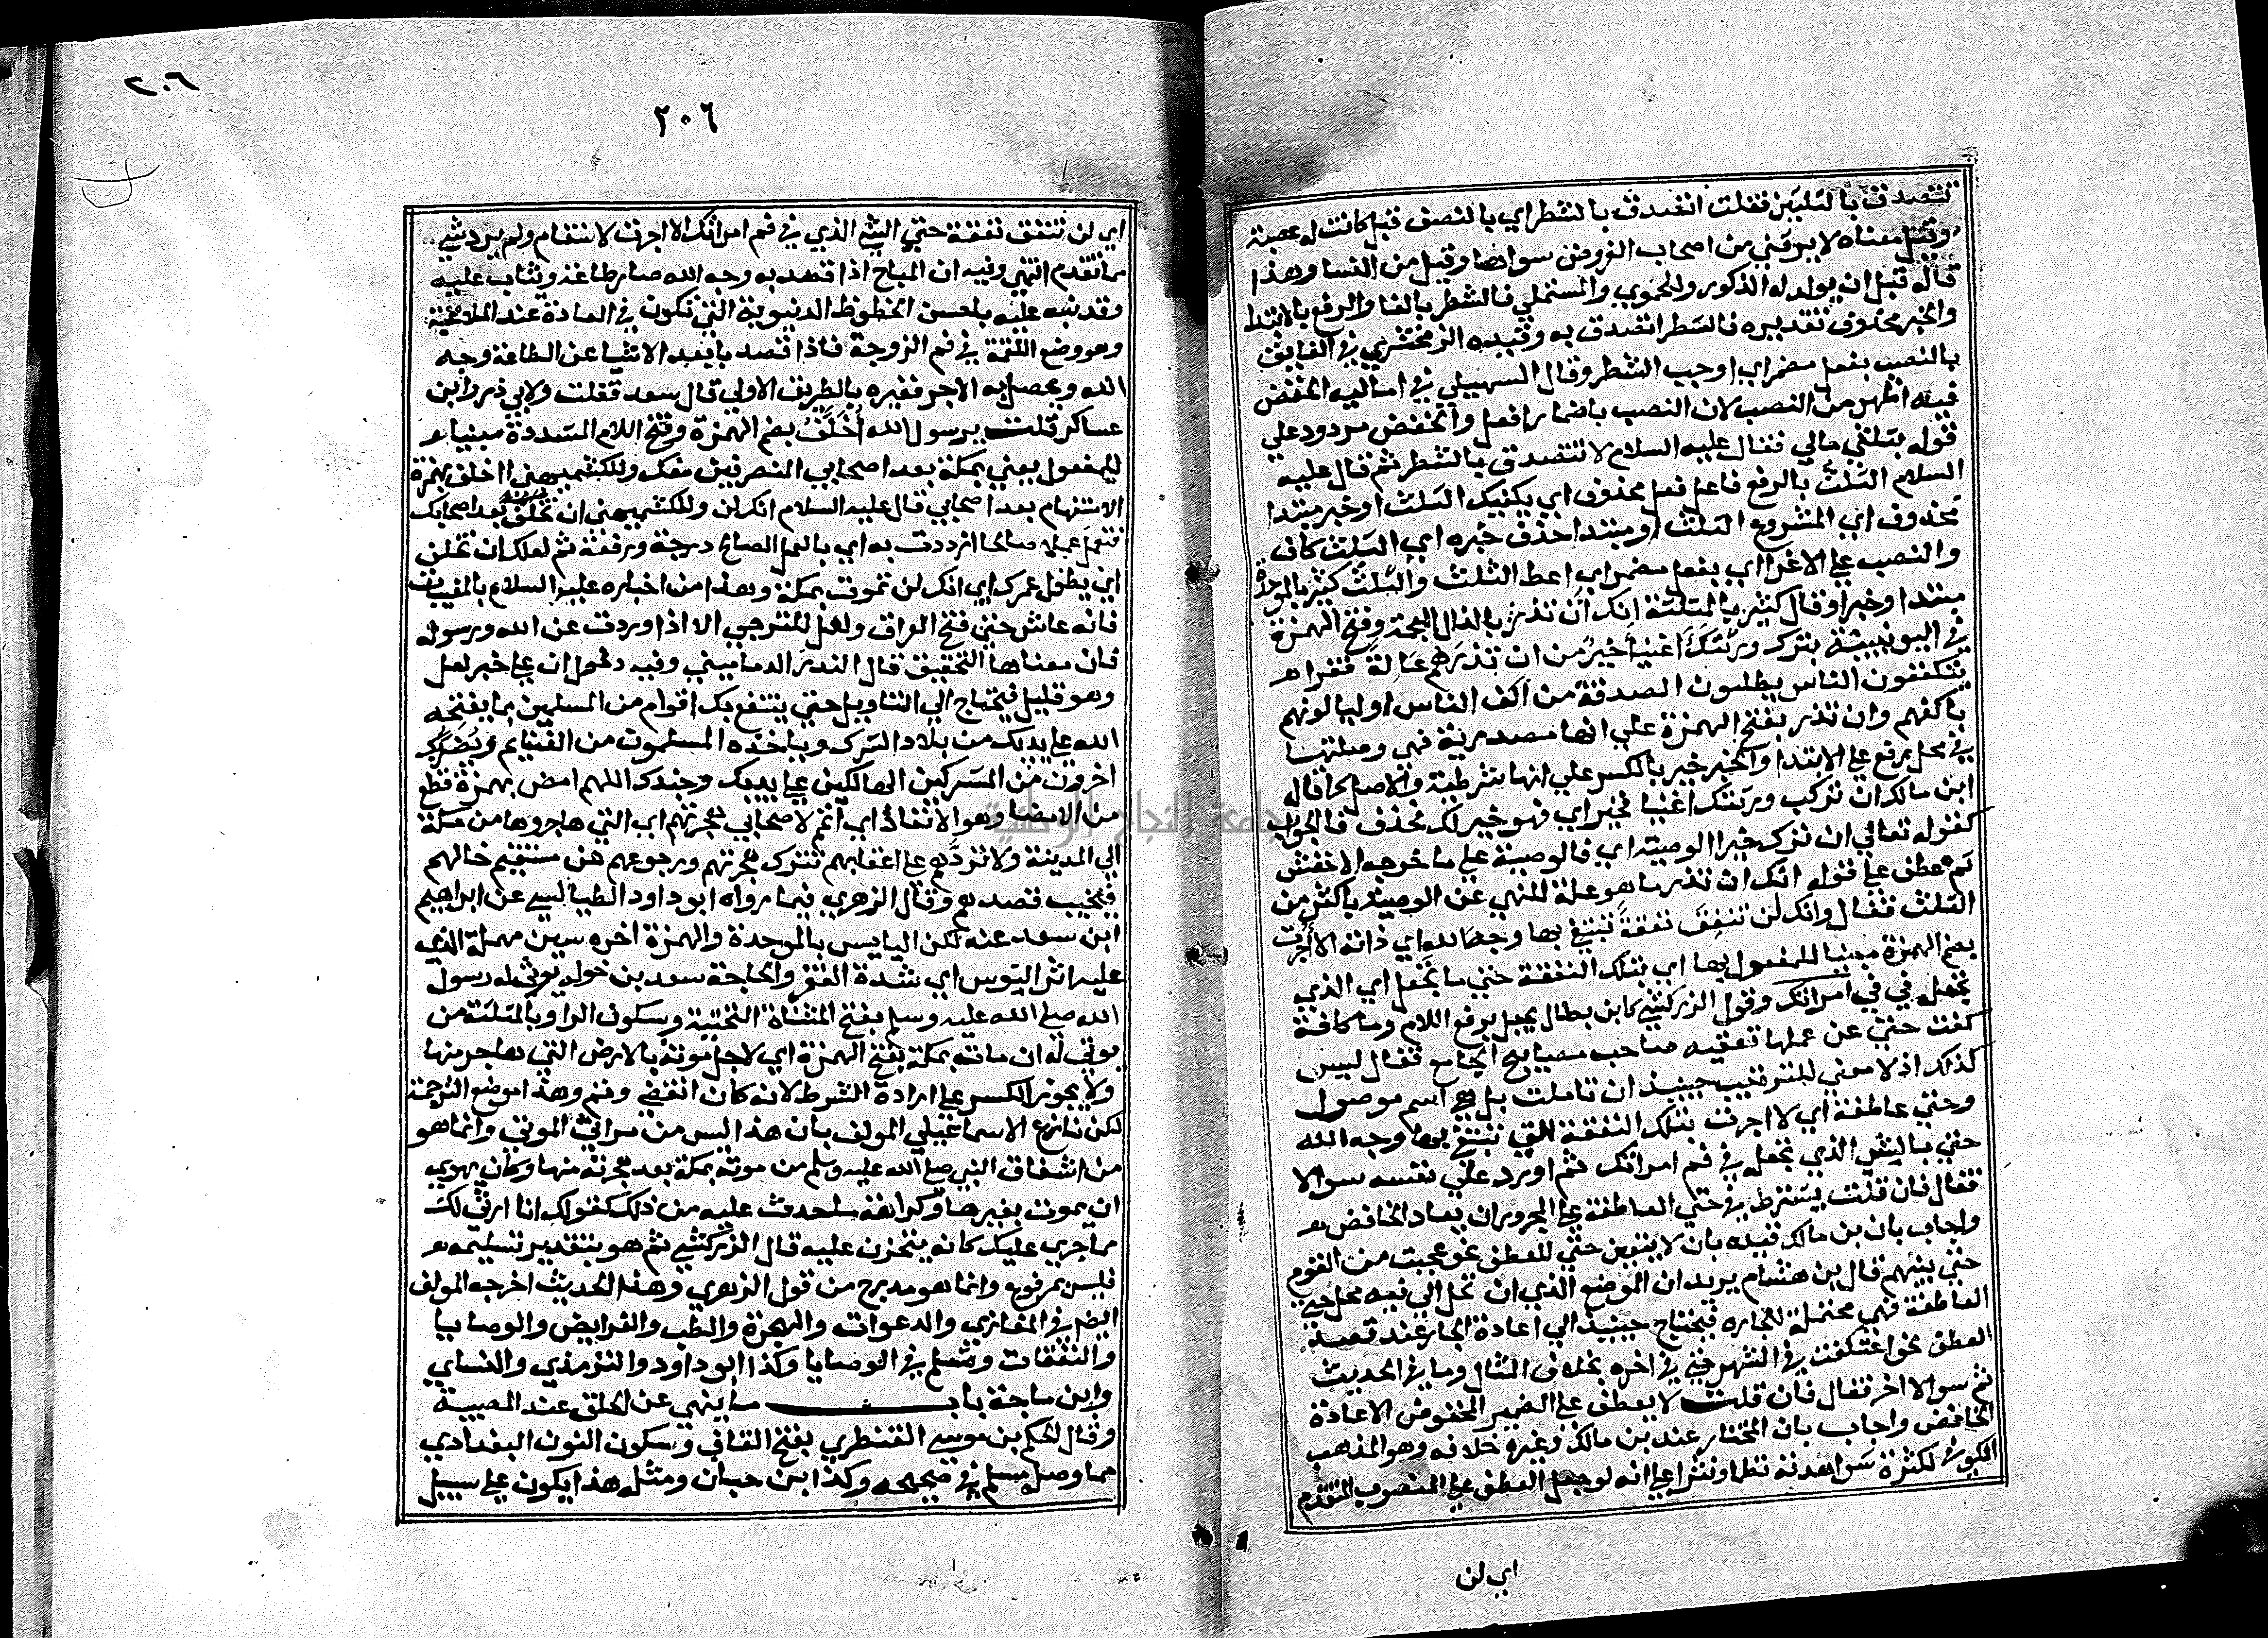 تتصدق بالثلثين فقلت اتصدق بالشطر اي بالنصف قيل كانت له عصبة
وقيل معناه لا يرثني من اصحاب الفروض سواها وقيل من النسا وهذا
قاله قبل ان يولد له الذكور والحموي والمستملي فالشطر بالفا والرفع بالابتدا
والخبر محذوف تقديره فالشطر اتصدق به وقيده الزمخشري في الفايق
بالنصب بفعل مضمر اي اوجب الشطر وقال السهيلي في اماليه الخفض
فيه اظهر من النصب لان النصب باضمار افعل والخفض مردود علي
قوله بثلثي مالي فقال عليه السلام لا تتصدق بالشطر ثم قال عليه
السلام الثلث بالرفع فاعل فعل محذوف اي يكفيك الثلث او خبر مبتدا
محذوف اي المشروع الثلث او مبتدا حذف خبره اي الثلث كاف
والنصب علي الاغرا اي بفعل مضمر اي اعط الثلث والثلث كثير بالموحدة
مبتدا وخبر او قال كثير بالمثلثة انك ان تذر بالذال المعجمة وفتح الهمزة
في اليونينية بترك ورثتك اغنيا خير من ان تذرهم عالة فقرا
يتكففون الناس يطلبون الصدقة من اكف الناس او ليالونهم
باكفهم وان تذر بفتح الهمزة علي انها مصدرية فهي وصلتها
في محل رفع علي الابتدا والخبر خير بالكسر علي انها شرطية والاصل كما قاله
ابن مالك ان تركب ورثتك اغنيا فخير اي فهو خير لك فحذف فالجواب
كقوله تعالي ان ترك خيرا الوصية اي فالوصية علي ما خرجه الاخفش
ثم عطف علي قوله انك ان تذر ما هو علة للنهي عن الوصية باكثر من
الثلث فقال وانك لن تنفق نفقة تبتغي بها وجه الله اي ذاته الا اجرت
بضم الهمزة مبنيا للمفعول بها اي بتلك النفقة حتي ما تجعل اي الذي
تجعله في في امراتك وقول الزركشي كابن بطال يجعل برفع اللام وما كافة
كفت حتي عن عملها تعقبه صاحب مصابيح الجامع فقال ليس
كذلك اذ لا معني للتركيب حينيذ ان تاملت بل هي اسم موصول
وحتي عاطفة اي لا اجرت بتلك النفقة التي تبتغي بها وجه الله
حتي بالشي الذي تجعله في فم امراتك ثم اورد علي نفسه سوالا
فقال فان قلت يشترط في حتي العاطفة علي المجرور ان يعاد الخافض
واجاب بان بن مالك قيده بان لا يتعين حتي للعطف نحو عجبت من القوم
حتي بينهم قال بن هشام يريد ان الموضع الذي ان تحل الي فيه محل حتي
العاطفة فهي محتملة للجاره فيحتاج حينيذ الي اعادة الجار عند قصد
العطف نحو اعتكفت في الشهر حتي في اخره بخلاف المثال وما في الحديث
ثم سوالا اخر فقال فان قلت لا يعطف علي الضمير المخفوض الا عادة
الخافض واجاب بان المختار عند بن مالك وغيره خلافه وهو المذهب
الكوفي لكثرة شواهدته نظما ونثرا علي انه لو جعل العطف علي المنصوب المتقدم
اي لن
٢٠٦
٢٠٦
اي لن تنفق نفقة حتي الشي الذي في فم امراتك الا اجرت لاستقام ولم يرد شي
ما تقدم انتهي وفيه ان المباح اذا قصد به وجه الله صار طاعة ويثاب عليه
وقد نبه عليه باحسن الحظوظ الدنيوية التي تكون في العادة عند الملاعبة
وهو وضع اللقمة في فم الزوجة فاذا قصد بابعد الاشيا عن الطاعة وجه
الله ويحصل به الاجر فغيره بالطريق الاولي قال سعد فقلت ولابي ذر وابن
عساكر قلت يرسول الله اخلف بضم الهمزة وفتح اللام المشددة مبنيا
للمفعول يعني بمكة بعد اصحابي المنصرفين معك وللكشميهني ااخلف بهمزة
الاستفهام بعد اصحابي قال عليه السلام انك لن وللكشميهني ان تخلف بعد اصحابك
فتعمل عملا صالحا الا ازددت به اي بالعمل الصالح درجة ورفعة ثم لعلك ان تخلف
اي يطول عمرك اي انك لن تموت بمكة وهذا من اخباره عليه السلام بالمغيبات
فانه عاش حتي فتح العراق ولعل للترجي الا اذا وردت عن الله ورسوله
فان معناها التحقيق قال البدر الدماميني وفيه دخول ان علي خبر لعل
وهو قليل فيحتاج الي التاويل حتي ينتفع بك اقوام من المسلمين بما يفتحه
الله علي يديك من بلاد الشرك وياخذه المسلمون من الغنايم ويضر بك
اخرون من المشركين الهالكين علي يديك وجندك اللهم امض بهمزة قطع
من الامضا وهو الانفاذ اي اتم لاصحابي هجرتهم اي التي هاجروها من مكة
الي المدينة ولا تردهم علي اعقابهم بترك هجرتهم ورجوعهم عن مستقيم حالهم
فيخيب قصدهم وقال الزهري فيما رواه ابو داود الطيالسي عن ابراهيم
ابن سعد عنه لكن البايس بالموحدة والهمزة اخره سين مهملة الذي
عليه اثر البوس اي شدة الفقر والحاجة سعد بن خوله يرثي له رسول
الله صلي الله عليه وسلم بفتح المثناة التحتية وسكون الرا وبالمثلثة من
يوثي له ان مات بمكة بفتح الهمزة اي لاجل موته بالارض التي هاجر منها
ولا يجوز الكسر علي ارادة الشرط لانه كان انقضي وتم وهذا موضع الترجمة
لكن نازع الاسماعيلي المولف بان هذا ليس من مراثي الموتي وانما هو
من اشفاق النبي صلي الله عليه وسلم من موته بمكة بعد هجرته منها وكان يهوي
ان يموت بغيرها وكراهة ما حدث عليه من ذلك كقولك انا ارثي لك
مما جري عليك كانه يتحزن عليه قال الزركشي ثم هو بتقدير تسليمه
فليس بمرفوع وانما هو مدرج من قول الزهري وهذا الحديث اخرجه المولف
ايضا في المغازي والدعوات والهجرة والطب والفرايض والوصايا
والنفقات ومسلم في الوصايا وكذا ابو داود والترمذي والنساي
وابن ماجة باب ما ينهي عن الحلق عند المصيبة
وقال الحكم بن موسي القنطري بفتح القاف وسكون النون البغدادي
مما وصله مسلم في صحيحه وكذا ابن حبان ومثل هذا يكون علي سبيل
جامعة النجاح الوطنية